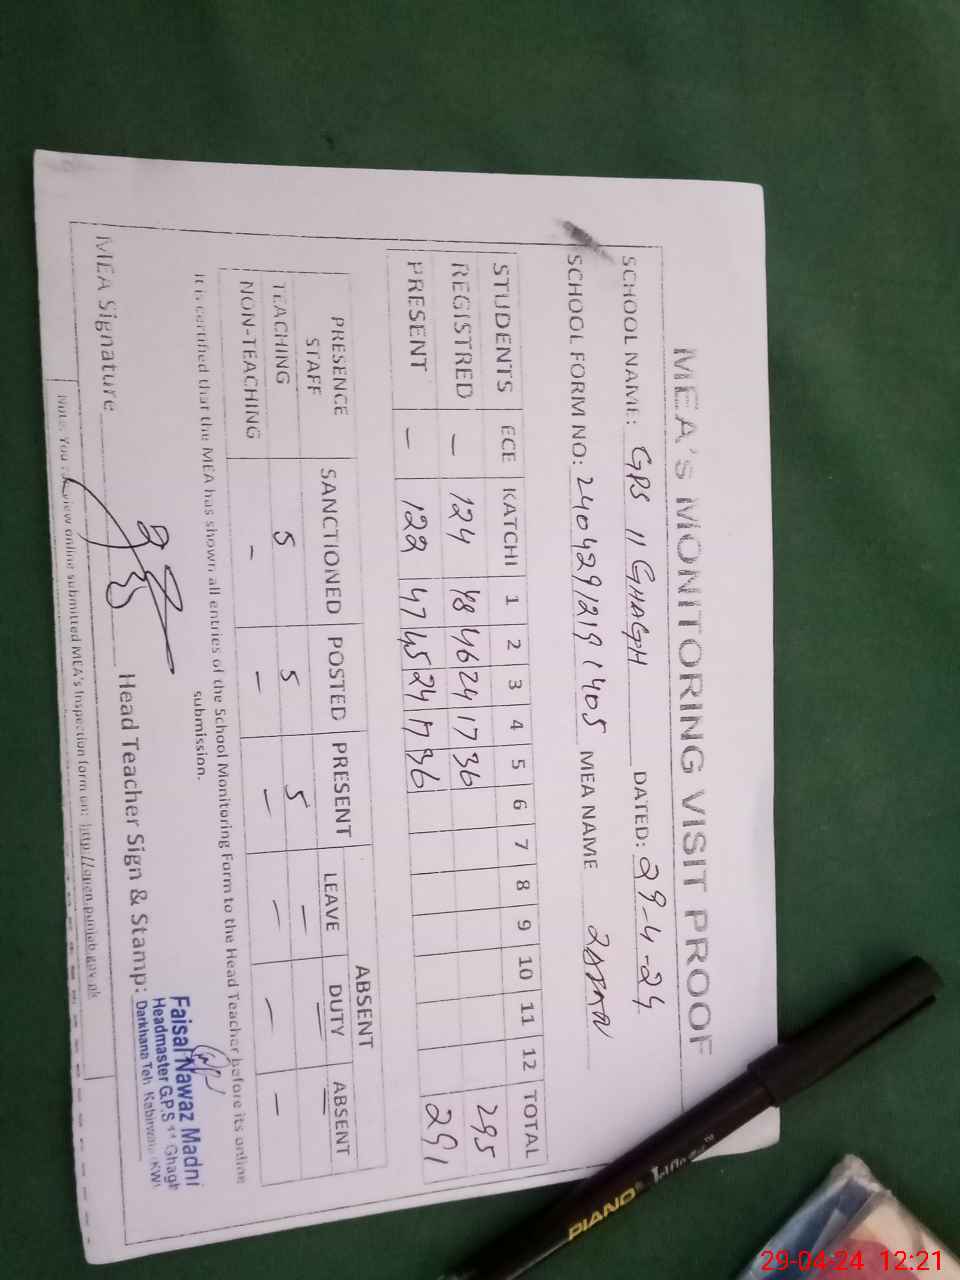 MEA's MONITORING VISIT PROOF
SCHOOL NAME: GPS 11 GHAGH DATED: 29-4-24
SCHOOL FORM NO: 2404291219 1405 MEA NAME
STUDENTS ECE KATCHI 1 2 3 4 5 6 7 8 9 10 11 12 TOTAL
REGISTRED — 124 48 46 24 17 36 295
PRESENT — 122 47 45 24 17 36 291
PRESENCE ABSENT
STAFF SANCTIONED POSTED PRESENT LEAVE DUTY ABSENT
TEACHING 5 5 5 — — —
NON-TEACHING — — — — — —
It is certified that the MEA has shown all entries of the School Monitoring Form to the Head Teacher before its online
submission.
MEA Signature Head Teacher Sign & Stamp:
Faisal Nawaz Madni
Headmaster G.P.S 11 Ghagh
Darkhana Teh Kabirwala (KWL
Note: You review online submitted MEA's Inspection form on: http://open.punjab.gov.pk
PIANO
29-04-24 12:21